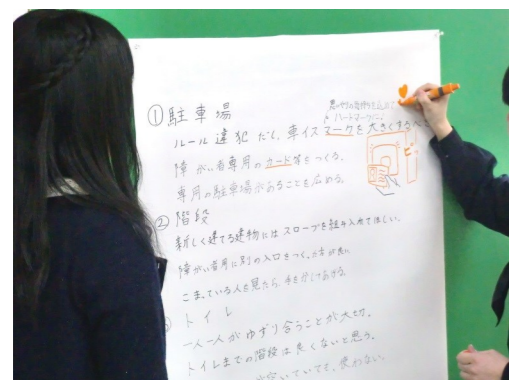 ①駐車場
ルール違犯だし、車イスマークを大きくするべ
ハートマーク
障がい者専用のカード等をつくる。
専用の駐車場があることを広める。
②階段
新しく建てる建物にはスロープを組み入れてほしい。
障がい者用に別の入口をつくった方が良い
こまっている人を見たら、手をかしてあげる。
トイレ
一人一人がゆずり合うことが大切。
トイレまでの階段は良くないと思う。
ていても、使わない。